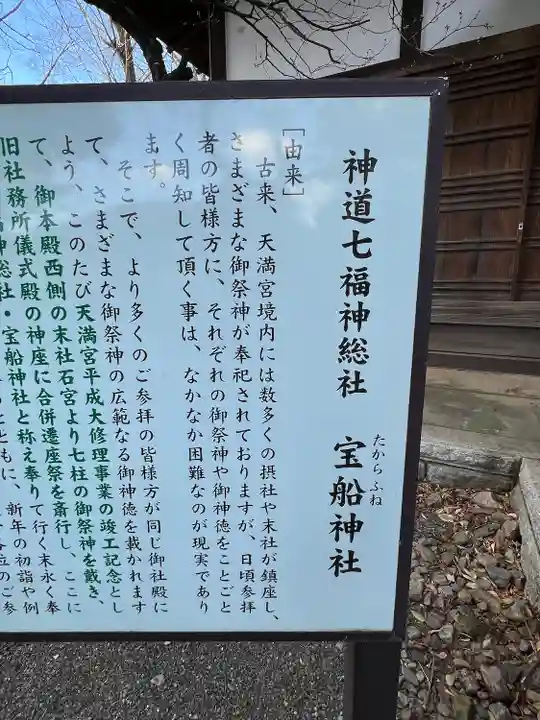 神道七福神総社　宝船神社
たからふね
［由来］
古来、天満宮境内には数多くの摂社や末社が鎮座し、
さまざまな御祭神が奉祀されておりますが、日頃参拝
者の皆様方に、それぞれの御祭神や御神徳をことごと
く周知して頂く事は、なかなか困難なのが現実であり
ます。
そこで、より多くのご参拝の皆様方が同じ御社殿に
て、さまざまな御祭神の広範なる御神徳を戴かれます
よう、このたび天満宮平成大修理事業の竣工記念とし
て、御本殿西側の末社石宮より七柱の御祭神を戴き、
旧社務所儀式殿の神座に合併遷座祭を斎行し、ここに
神総社・宝船神社と称え奉りて行く末永く奉
とともに、新年の初詣や例
のご参